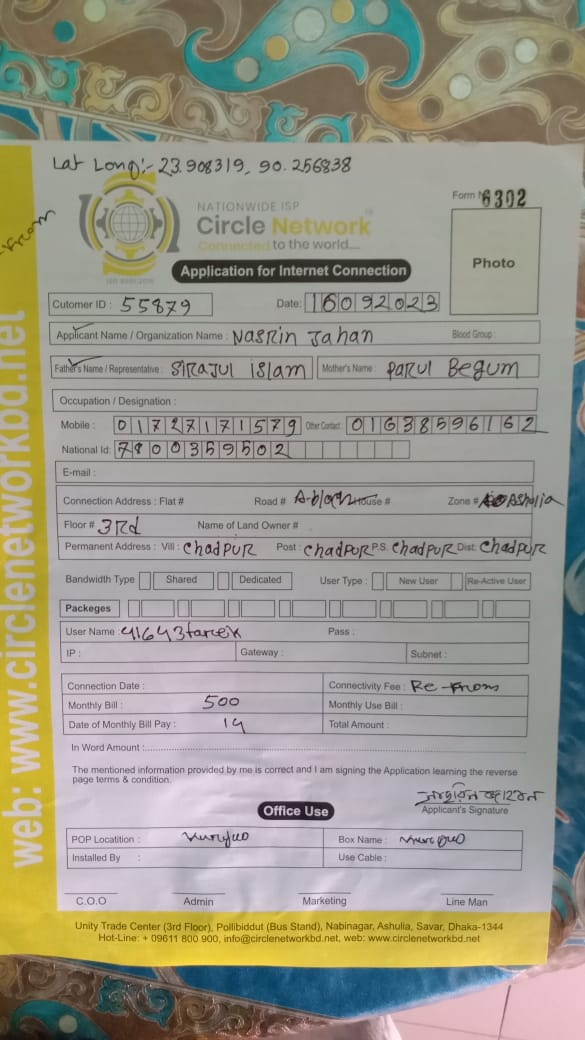 Lat Long:- 23.908319, 90.256838
From
NATIONWIDE ISP
Circle Network
Connected to the world....
ISO 9001:2015
Form 6302
Photo
Application for Internet Connection
Cutomer ID : 55879 Date: 16092023
Applicant Name / Organization Name : Nasrin Jahan Blood Group :
Father's Name / Representative : SIRAJUL ISlam Mother's Name : PARUL Begum
Occupation / Designation :
Mobile : 01727171579 Other Contact : 01638596162
National Id: 7800359502
E-mail :
Connection Address : Flat # Road # A-block House # Zone # Ashulia
Floor # 3Rd Name of Land Owner #
Permanent Address : Vill : ChadPUR Post : ChadPUR P.S. ChadPUR Dist. ChadPUR
Bandwidth Type Shared Dedicated User Type : New User Re-Active User
Packeges
User Name : 41643tarek Pass :
IP : Gateway : Subnet :
Connection Date : Connectivity Fee : Re-From
Monthly Bill : 500 Monthly Use Bill :
Date of Monthly Bill Pay : 14 Total Amount :
In Word Amount :
The mentioned information provided by me is correct and I am signing the Application learning the reverse
page terms & condition.
Applicant's Signature
Office Use
POP Locatition : Box Name :
Installed By : Use Cable :
C.O.O Admin Marketing Line Man
Unity Trade Center (3rd Floor), Pollibiddut (Bus Stand), Nabinagar, Ashulia, Savar, Dhaka-1344
Hot-Line: + 09611 800 900, info@circlenetworkbd.net, web: www.circlenetworkbd.net
web: www.circlenetworkbd.net